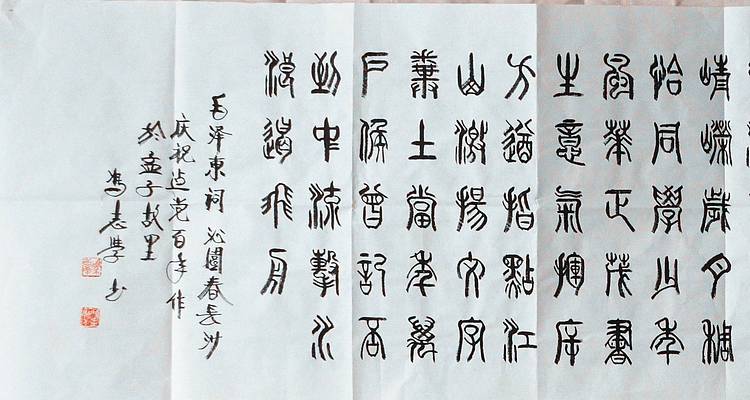 崝嶸歲月稠
恰同學少年
風華正茂書
生意氣揮斥
方遒指點江
山激揚文字
糞土當年萬
戶侯曾記否
到中流擊水
浪遏飛舟
毛泽東词 沁園春長沙
庆祝建党百年作
於孟子故里
冯志學 书